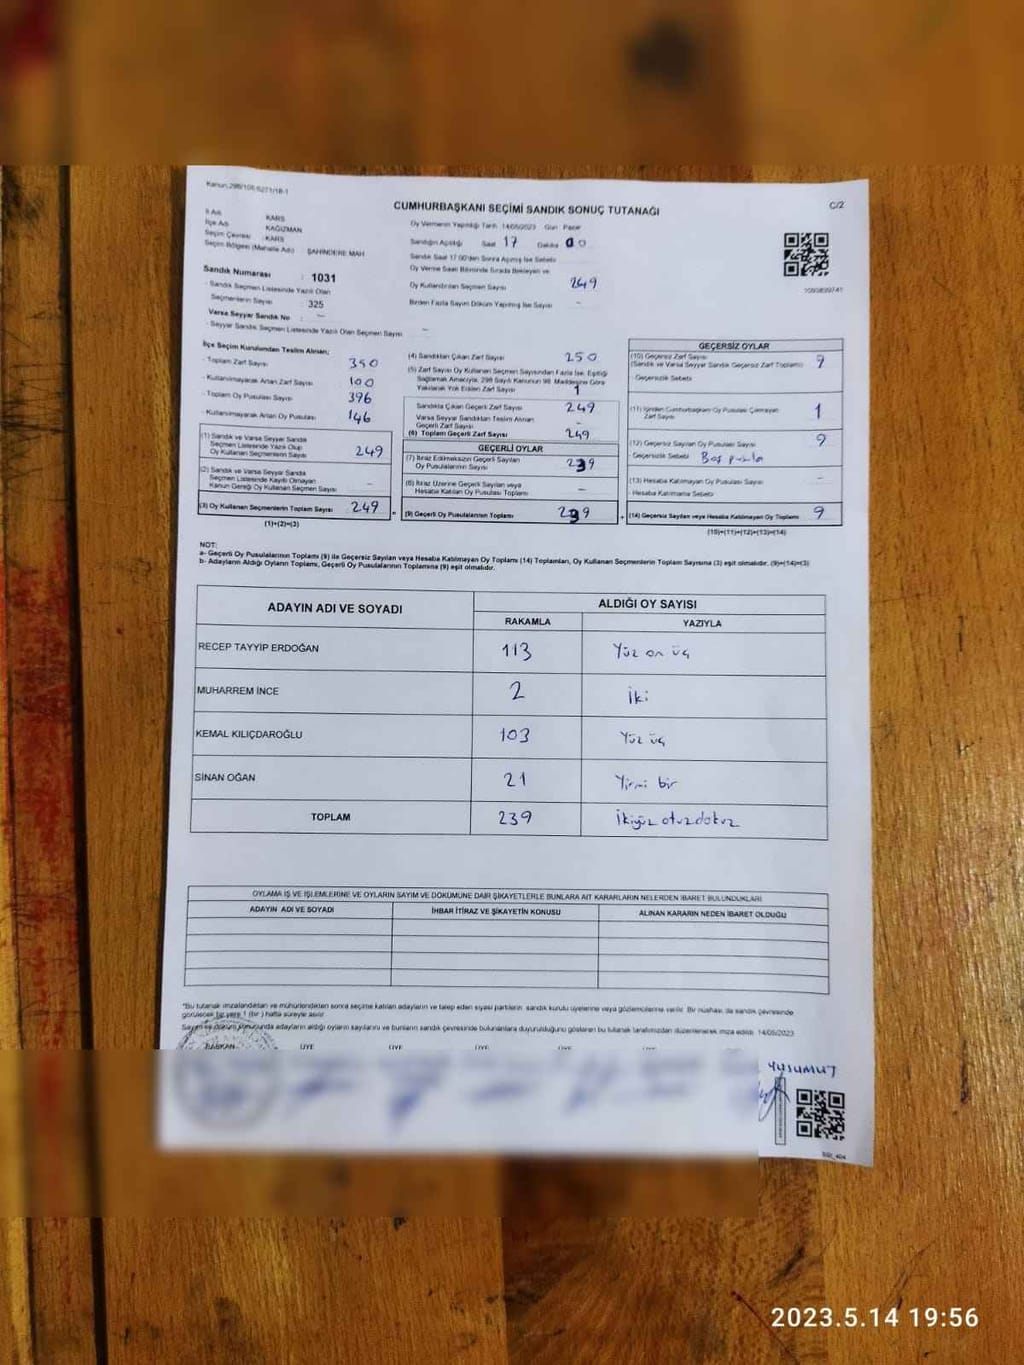 Kanun.298/105-6271/18-1
CUMHURBAŞKANI SEÇİMİ SANDIK SONUÇ TUTANAĞI
C/2
İl Adı KARS
İlçe Adı KAĞIZMAN
Seçim Çevresi KARS
Seçim Bölgesi (Mahalle Adı) ŞAHİNDERE MAH
Sandık Numarası : 1031
- Sandık Seçmen Listesinde Yazılı Olan
Seçmenlerin Sayısı : 325
Varsa Seyyar Sandık No : –
- Seyyar Sandık Seçmen Listesinde Yazılı Olan Seçmen Sayısı –
Oy Vermenin Yapıldığı Tarih 14/05/2023 Gün Pazar
Sandığın Açıldığı Saat 17 Dakika 00
Sandık Saat 17:00'den Sonra Açılmış İse Sebebi
Oy Verme Saati Bitiminde Sırada Bekleyen ve
Oy Kullandırılan Seçmen Sayısı 249
Birden Fazla Sayım Döküm Yapılmış İse Sayısı –
1093899741
İlçe Seçim Kurulundan Teslim Alınan;
- Toplam Zarf Sayısı 350
- Kullanılmayarak Artan Zarf Sayısı 100
- Toplam Oy Pusulası Sayısı 396
- Kullanılmayarak Artan Oy Pusulası 146
(1) Sandık ve Varsa Seyyar Sandık
Seçmen Listesinde Yazılı Olup
Oy Kullanan Seçmenlerin Sayısı 249
(2) Sandık ve Varsa Seyyar Sandık
Seçmen Listesinde Kayıtlı Olmayan
Kanun Gereği Oy Kullanan Seçmen Sayısı –
(3) Oy Kullanan Seçmenlerin Toplam Sayısı 249
(1)+(2)=(3)
(4) Sandıktan Çıkan Zarf Sayısı 250
(5) Zarf Sayısı Oy Kullanan Seçmen Sayısından Fazla İse, Eşitliği
Sağlamak Amacıyla, 298 Sayılı Kanunun 98. Maddesine Göre
Yakılarak Yok Edilen Zarf Sayısı 1
Sandıkta Çıkan Geçerli Zarf Sayısı 249
Varsa Seyyar Sandıktan Teslim Alınan
Geçerli Zarf Sayısı –
(6) Toplam Geçerli Zarf Sayısı 249
GEÇERLİ OYLAR
(7) İtiraz Edilmeksizin Geçerli Sayılan
Oy Pusulalarının Sayısı 239
(8) İtiraz Üzerine Geçerli Sayılan veya
Hesaba Katılan Oy Pusulası Toplamı –
(9) Geçerli Oy Pusulalarının Toplamı 239
+
GEÇERSİZ OYLAR
(10) Geçersiz Zarf Sayısı
(Sandık ve Varsa Seyyar Sandık Geçersiz Zarf Toplamı) 9
- Geçersizlik Sebebi
(11) İçinden Cumhurbaşkanı Oy Pusulası Çıkmayan
Zarf Sayısı 1
(12) Geçersiz Sayılan Oy Pusulası Sayısı 9
- Geçersizlik Sebebi Boş pusula
(13) Hesaba Katılmayan Oy Pusulası Sayısı –
- Hesaba Katılmama Sebebi
(14) Geçersiz Sayılan veya Hesaba Katılmayan Oy Toplamı 9
(10)+(11)+(12)+(13)=(14)
NOT:
a- Geçerli Oy Pusulalarının Toplamı (9) ile Geçersiz Sayılan veya Hesaba Katılmayan Oy Toplamı (14) Toplamları, Oy Kullanan Seçmenlerin Toplam Sayısına (3) eşit olmalıdır. (9)+(14)=(3)
b- Adayların Aldığı Oyların Toplamı, Geçerli Oy Pusulalarının Toplamına (9) eşit olmalıdır.
ADAYIN ADI VE SOYADI ALDIĞI OY SAYISI
RAKAMLA YAZIYLA
RECEP TAYYİP ERDOĞAN 113 Yüz on üç
MUHARREM İNCE 2 İki
KEMAL KILIÇDAROĞLU 103 Yüz üç
SİNAN OĞAN 21 Yirmi bir
TOPLAM 239 İkiyüz otuzdokuz
OYLAMA İŞ VE İŞLEMLERİNE VE OYLARIN SAYIM VE DÖKÜMÜNE DAİR ŞİKAYETLERLE BUNLARA AİT KARARLARIN NELERDEN İBARET BULUNDUKLARI
ADAYIN ADI VE SOYADI İHBAR İTİRAZ VE ŞİKAYETİN KONUSU ALINAN KARARIN NEDEN İBARET OLDUĞU
*Bu tutanak imzalandıktan ve mühürlendikten sonra seçime katılan adayların ve talep eden siyasi partilerin sandık kurulu üyelerine veya gözlemcilerine verilir. Bir nüshası da sandık çevresinde
görülecek bir yere 1 (bir) hafta süreyle asılır.
Sayım ve döküm sonucunda adayların aldığı oyların sayılarını ve bunların sandık çevresinde bulunanlara duyurulduğunu gösteren bu tutanak tarafımızdan düzenlenerek imza edildi. 14/05/2023
BAŞKAN ÜYE ÜYE ÜYE ÜYE
2023.5.14 19:56